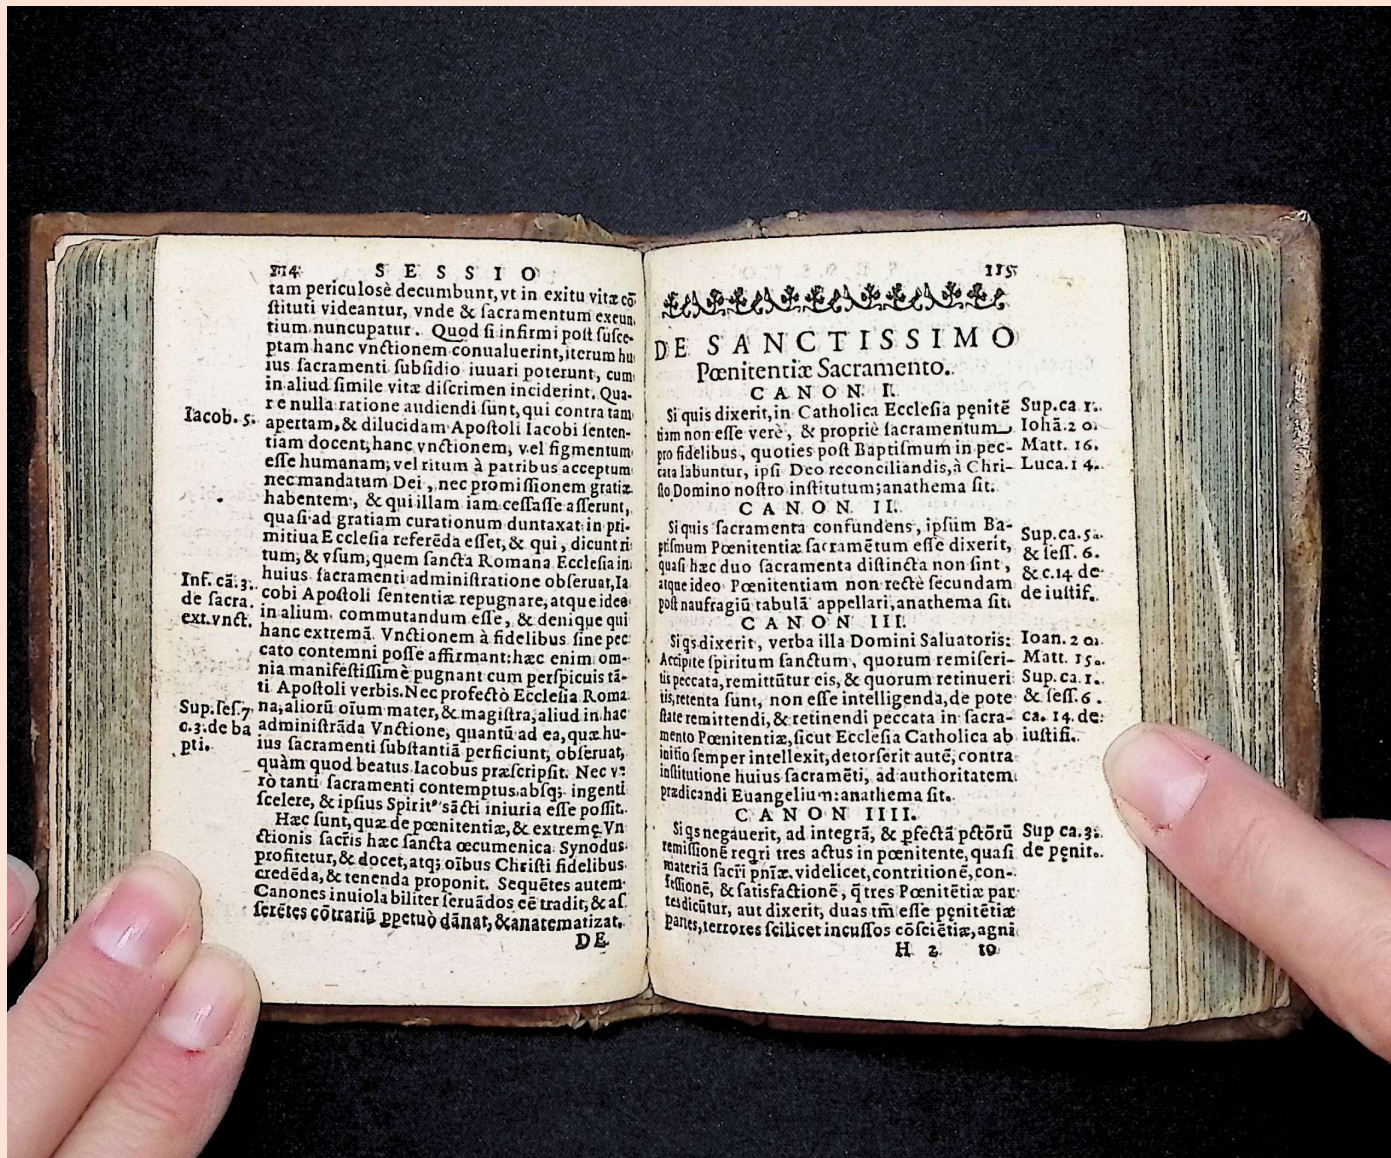 114 SESSIO
tam periculosè decumbunt, vt in exitu vitæ cō
stituti videantur, vnde & sacramentum exeun
tium nuncupatur. Quod si infirmi post susce-
ptam hanc vnctionem conualuerint, iterum hu
ius sacramenti subsidio iuuari poterunt, cum
in aliud simile vitæ discrimen inciderint. Qua-
re nulla ratione audiendi sunt, qui contra tam
Iacob. 5.
apertam, & dilucidam Apostoli Iacobi senten-
tiam docent, hanc vnctionem, vel figmentum
esse humanam, vel ritum à patribus acceptum
nec mandatum Dei, nec promissionem gratiæ
habentem, & qui illam iam cessasse asserunt,
quasi ad gratiam curationum duntaxat in pri-
mitiua Ecclesia referēda esset, & qui, dicunt ri
tum, & vsum, quem sancta Romana Ecclesia in
huius sacramenti administratione obseruat, Ia
Inf. cā. 3.
de sacra.
ext. vnct.
cobi Apostoli sententiæ repugnare, atque ideo
in alium commutandum esse, & denique qui
hanc extremā Vnctionem à fidelibus sine pec
cato contemni posse affirmant: hæc enim om-
nia manifestissimè pugnant cum perspicuis tā-
ti Apostoli verbis. Nec profectò Ecclesia Roma
Sup. ses. 7
c. 3. de ba
pti.
na, aliorū oīum mater, & magistra, aliud in hac
administrāda Vnctione, quantū ad ea, quæ hu-
ius sacramenti substantiā perficiunt, obseruat,
quàm quod beatus Iacobus præscripsit. Nec ve
rò tanti sacramenti contemptus absq; ingenti
scelere, & ipsius Spirit⁹ sācti iniuria esse possit.
Hæc sunt, quæ de pœnitentiæ, & extremę Vn
ctionis sacrīs hæc sancta œcumenica Synodus
profitetur, & docet, atq; oībus Christi fidelibus
credēda, & tenenda proponit. Sequētes autem
Canones inuiolabiliter seruādos eē tradit, & as
serētes cōtrariū ꝑpetuò dānat, & anatematizat.
DE
115
DE SANCTISSIMO
Pœnitentiæ Sacramento.
CANON I.
Si quis dixerit, in Catholica Ecclesia pęnitē
tiam non esse verè, & propriè sacramentum
pro fidelibus, quoties post Baptismum in pec-
cata labuntur, ipsi Deo reconciliandis, à Chri-
sto Domino nostro institutum; anathema sit.
Sup. ca 1.
Iohā. 20.
Matt. 16.
Luca. 14.
CANON II.
Si quis sacramenta confundens, ipsum Ba-
ptismum Pœnitentiæ sacramētum esse dixerit,
quasi hæc duo sacramenta distincta non sint,
atque ideo Pœnitentiam non rectè secundam
post naufragiū tabulā appellari, anathema sit.
Sup. ca. 5.
& sess. 6.
& c. 14 de
de iustif.
CANON III.
Si qs dixerit, verba illa Domini Saluatoris:
Accipite spiritum sanctum, quorum remiseri-
tis peccata, remittūtur eis, & quorum retinueri
tis, retenta sunt, non esse intelligenda, de pote
state remittendi, & retinendi peccata in sacra-
mento Pœnitentiæ, sicut Ecclesia Catholica ab
initio semper intellexit, detorserit autē, contra
institutione huius sacramēti, ad authoritatem
prædicandi Euangelium: anathema sit.
Ioan. 20.
Matt. 15.
Sup. ca. 1.
& sess. 6.
ca. 14. de
iustifi.
CANON IIII.
Si qs negauerit, ad integrā, & ꝑfectā pctōrū
remissionē reqri tres actus in pœnitente, quasi
materiā sacrī pnīæ. videlicet, contritionē, con-
fessionē, & satisfactionē, q̄ tres Pœnitētiæ par
tes dicūtur, aut dixerit, duas tm̄ esse pęnitētiæ
partes, terrores scilicet incussos cōsciētiæ, agni
Sup ca. 3.
de pęnit.
H 2 to